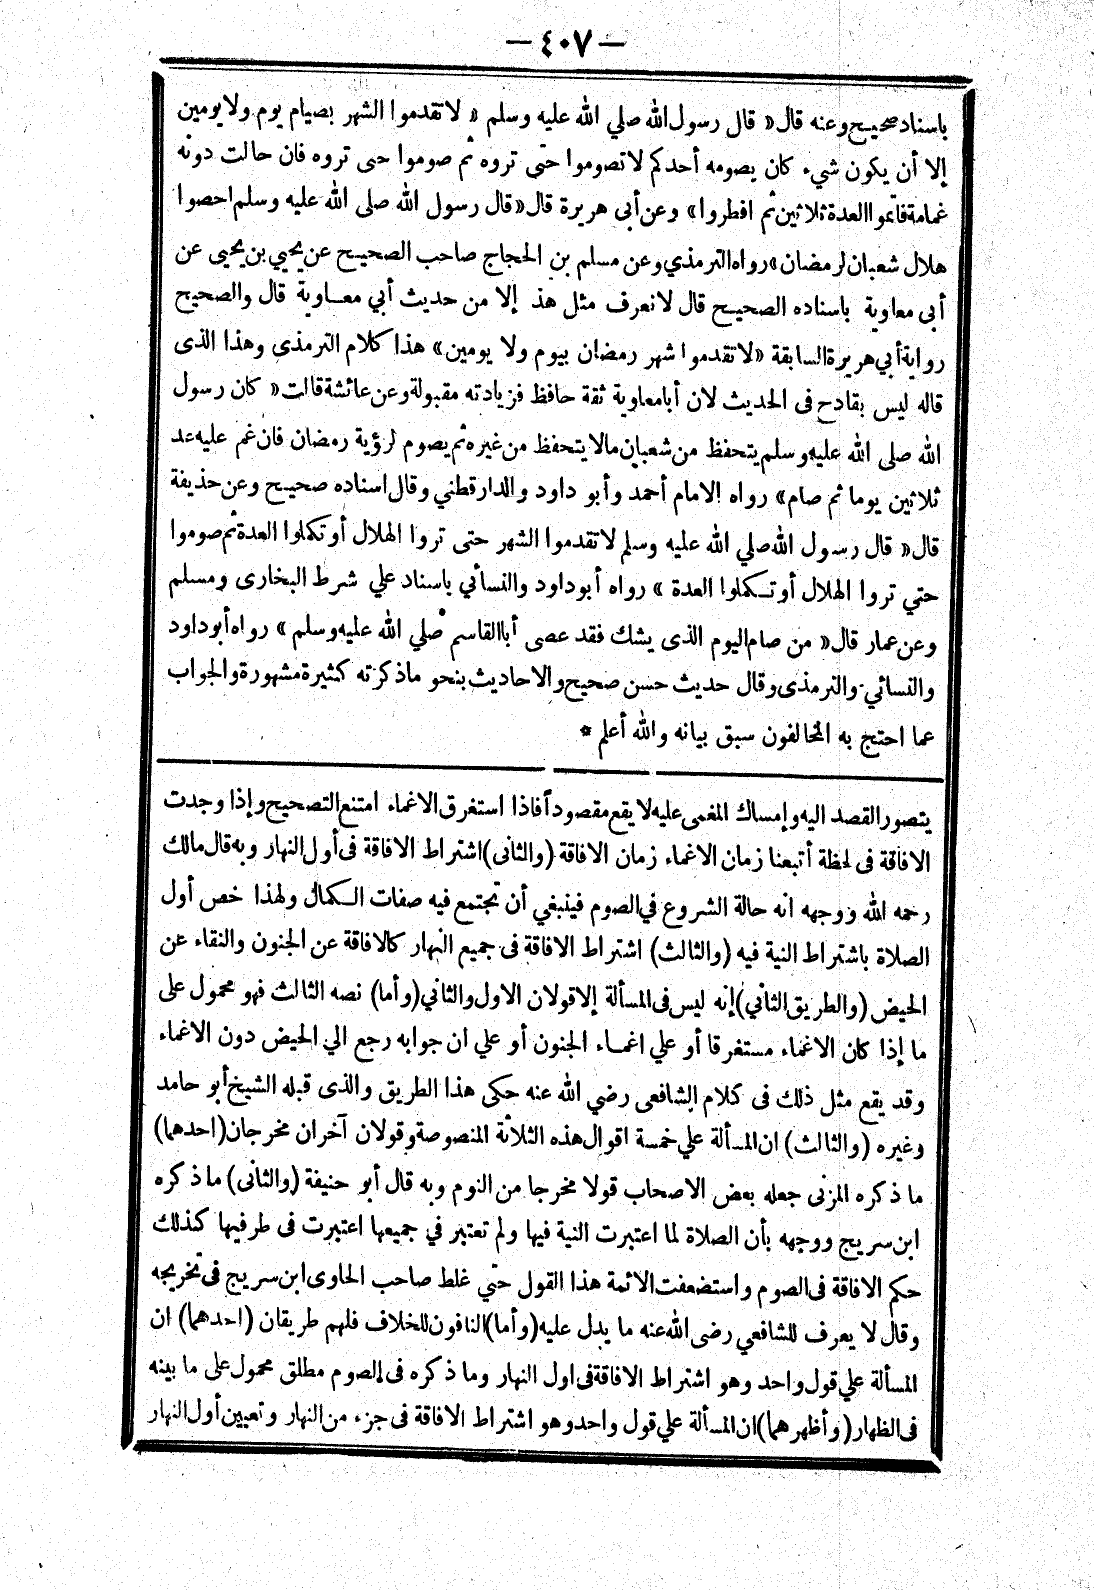 — ٤٠٧ —
باسناد صحيح وعنه قال « قال رسول الله صلي الله عليه وسلم « لا تقدموا الشهر بصيام يوم ولا يومين
إلا أن يكون شيء كان يصومه أحدكم لا تصوموا حتى تروه ثم صوموا حتى تروه فان حالت دونه
غمامة فاتموا العدة ثلاثين ثم افطروا » وعن أبى هريرة قال « قال رسول الله صلى الله عليه وسلم احصوا
هلال شعبان لرمضان » رواه الترمذي وعن مسلم بن الحجاج صاحب الصحيح عن يحيي بن يحيى عن
أبى معاوية باسناده الصحيح قال لا نعرف مثل هذ إلا من حديث أبي معاوية قال والصحيح
رواية أبي هريرة السابقة « لا تقدموا شهر رمضان بيوم ولا يومين » هذا كلام الترمذى وهذا الذى
قاله ليس بقادح فى الحديث لان أبا معاوية ثقة حافظ فزيادته مقبولة وعن عائشة قالت « كان رسول
الله صلى الله عليه وسلم يتحفظ من شعبان مالا يتحفظ من غيره ثم يصوم لرؤية رمضان فان غم عليه عد
ثلاثين يوما ثم صام » رواه الامام أحمد وأبو داود والدارقطني وقال اسناده صحيح وعن حذيفة
قال « قال رسول الله صلي الله عليه وسلم لا تقدموا الشهر حتى تروا الهلال أو تكملوا العدة ثم صوموا
حتي تروا الهلال أو تكملوا العدة » رواه أبو داود والنسائي باسناد علي شرط البخارى ومسلم
وعن عمار قال « من صام اليوم الذى يشك فقد عصى أبا القاسم صلي الله عليه وسلم » رواه أبو داود
والنسائي والترمذى وقال حديث حسن صحيح والاحاديث بنحو ماذكرته كثيرة مشهورة والجواب
عما احتج به المخالفون سبق بيانه والله أعلم *
يتصور القصد اليه وإمساك المغمى عليه لا يقع مقصوداً فاذا استغرق الاغماء امتنع التصحيح وإذا وجدت
الافاقة فى لحظة أتبعنا زمان الاغماء زمان الافاقة (والثانى) اشتراط الافاقة فى أول النهار وبه قال مالك
رحمه الله ووجهه انه حالة الشروع في الصوم فينبغي أن تجتمع فيه صفات الكمال ولهذا خص أول
الصلاة باشتراط النية فيه (والثالث) اشتراط الافاقة فى جميع النهار كالافاقة عن الجنون والنقاء عن
الحيض (والطريق الثاني) إنه ليس فى المسألة إلا قولان الاول والثاني (وأما) نصه الثالث فهو محمول على
ما إذا كان الاغماء مستغرقا أو علي اغماء الجنون أو علي ان جوابه رجع الي الحيض دون الاغماء
وقد يقع مثل ذلك فى كلام الشافعى رضي الله عنه حكى هذا الطريق والذى قبله الشيخ أبو حامد
وغيره (والثالث) ان المسألة علي خمسة اقوال هذه الثلاثة المنصوصة وقولان آخران مخرجان (احدهما)
ما ذكره المزنى جعله بعض الاصحاب قولا مخرجا من النوم وبه قال أبو حنيفة (والثانى) ما ذكره
ابن سريج ووجهه بأن الصلاة لما اعتبرت النية فيها ولم تعتبر في جميعها اعتبرت فى طرفيها كذلك
حكم الافاقة فى الصوم واستضعفت الائمة هذا القول حتي غلط صاحب الحاوى ابن سريج فى تخريجه
وقال لا يعرف للشافعي رضى الله عنه ما يدل عليه (وأما) النافون للخلاف فلهم طريقان (احدهما) ان
المسألة علي قول واحد وهو اشتراط الافاقة فى اول النهار وما ذكره فى الصوم مطلق محمول على ما بينه
فى الظهار (وأظهرهما) ان المسألة علي قول واحد وهو اشتراط الافاقة فى جزء من النهار وتعيين أول النهار